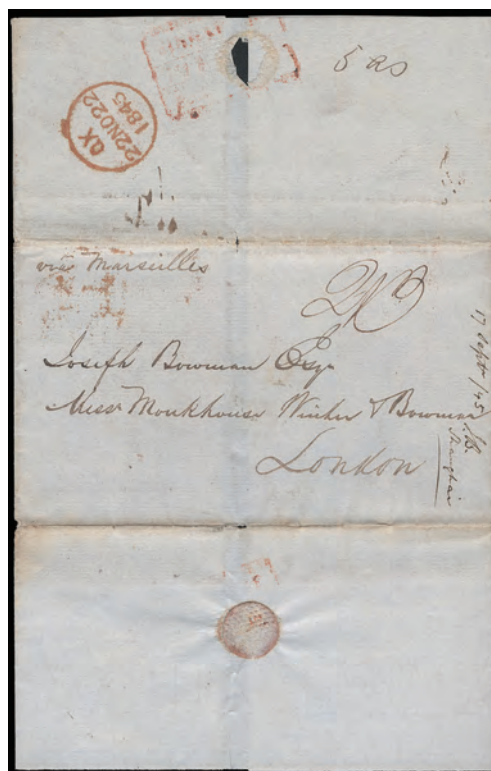 5 as
QX
22NO22
1845
via Marseilles
Joseph Bowman Esqr
Messrs Monkhouse Winter & Bowman
London
17 Sept /45
Shanghai